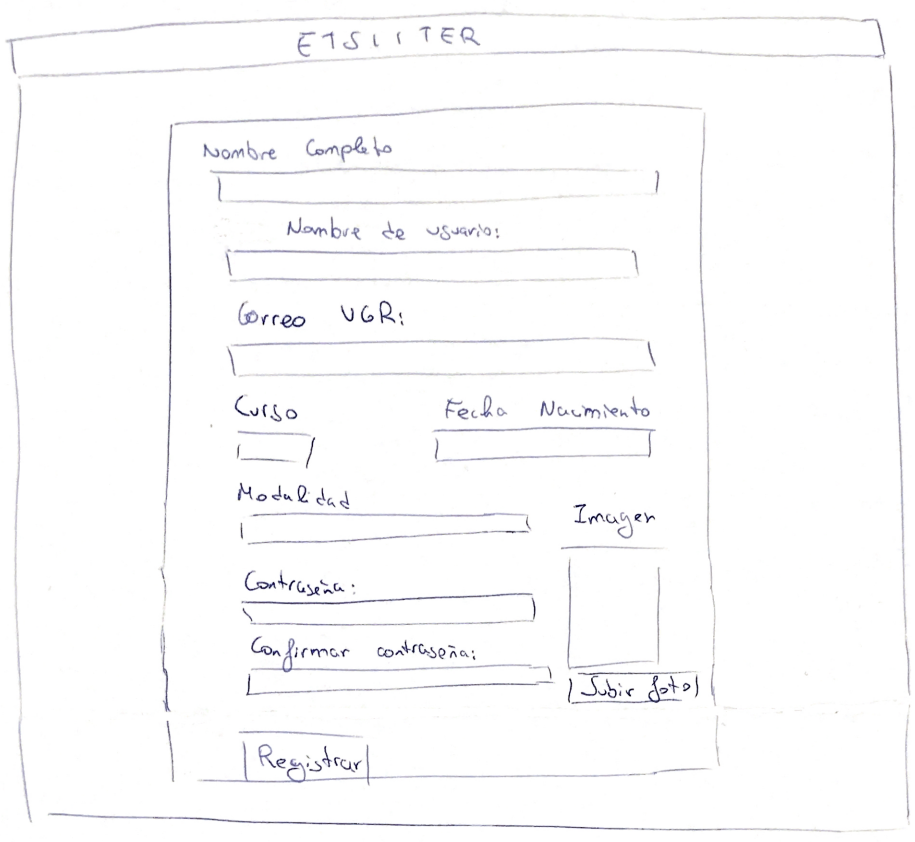 ETSIITER
Nombre Completo
Nombre de usuario:
Correo UGR:
Curso Fecha Nacimiento
Modalidad
Imagen
Contraseña:
Confirmar contraseña:
Subir foto
Registrar